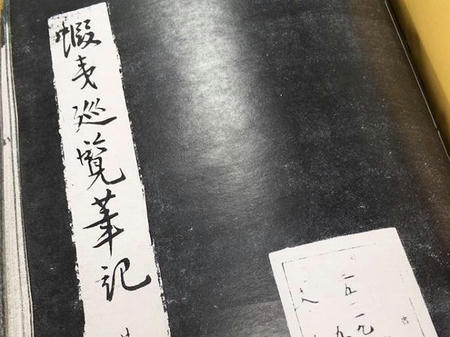 蝦夷巡覧筆記
五一九
九